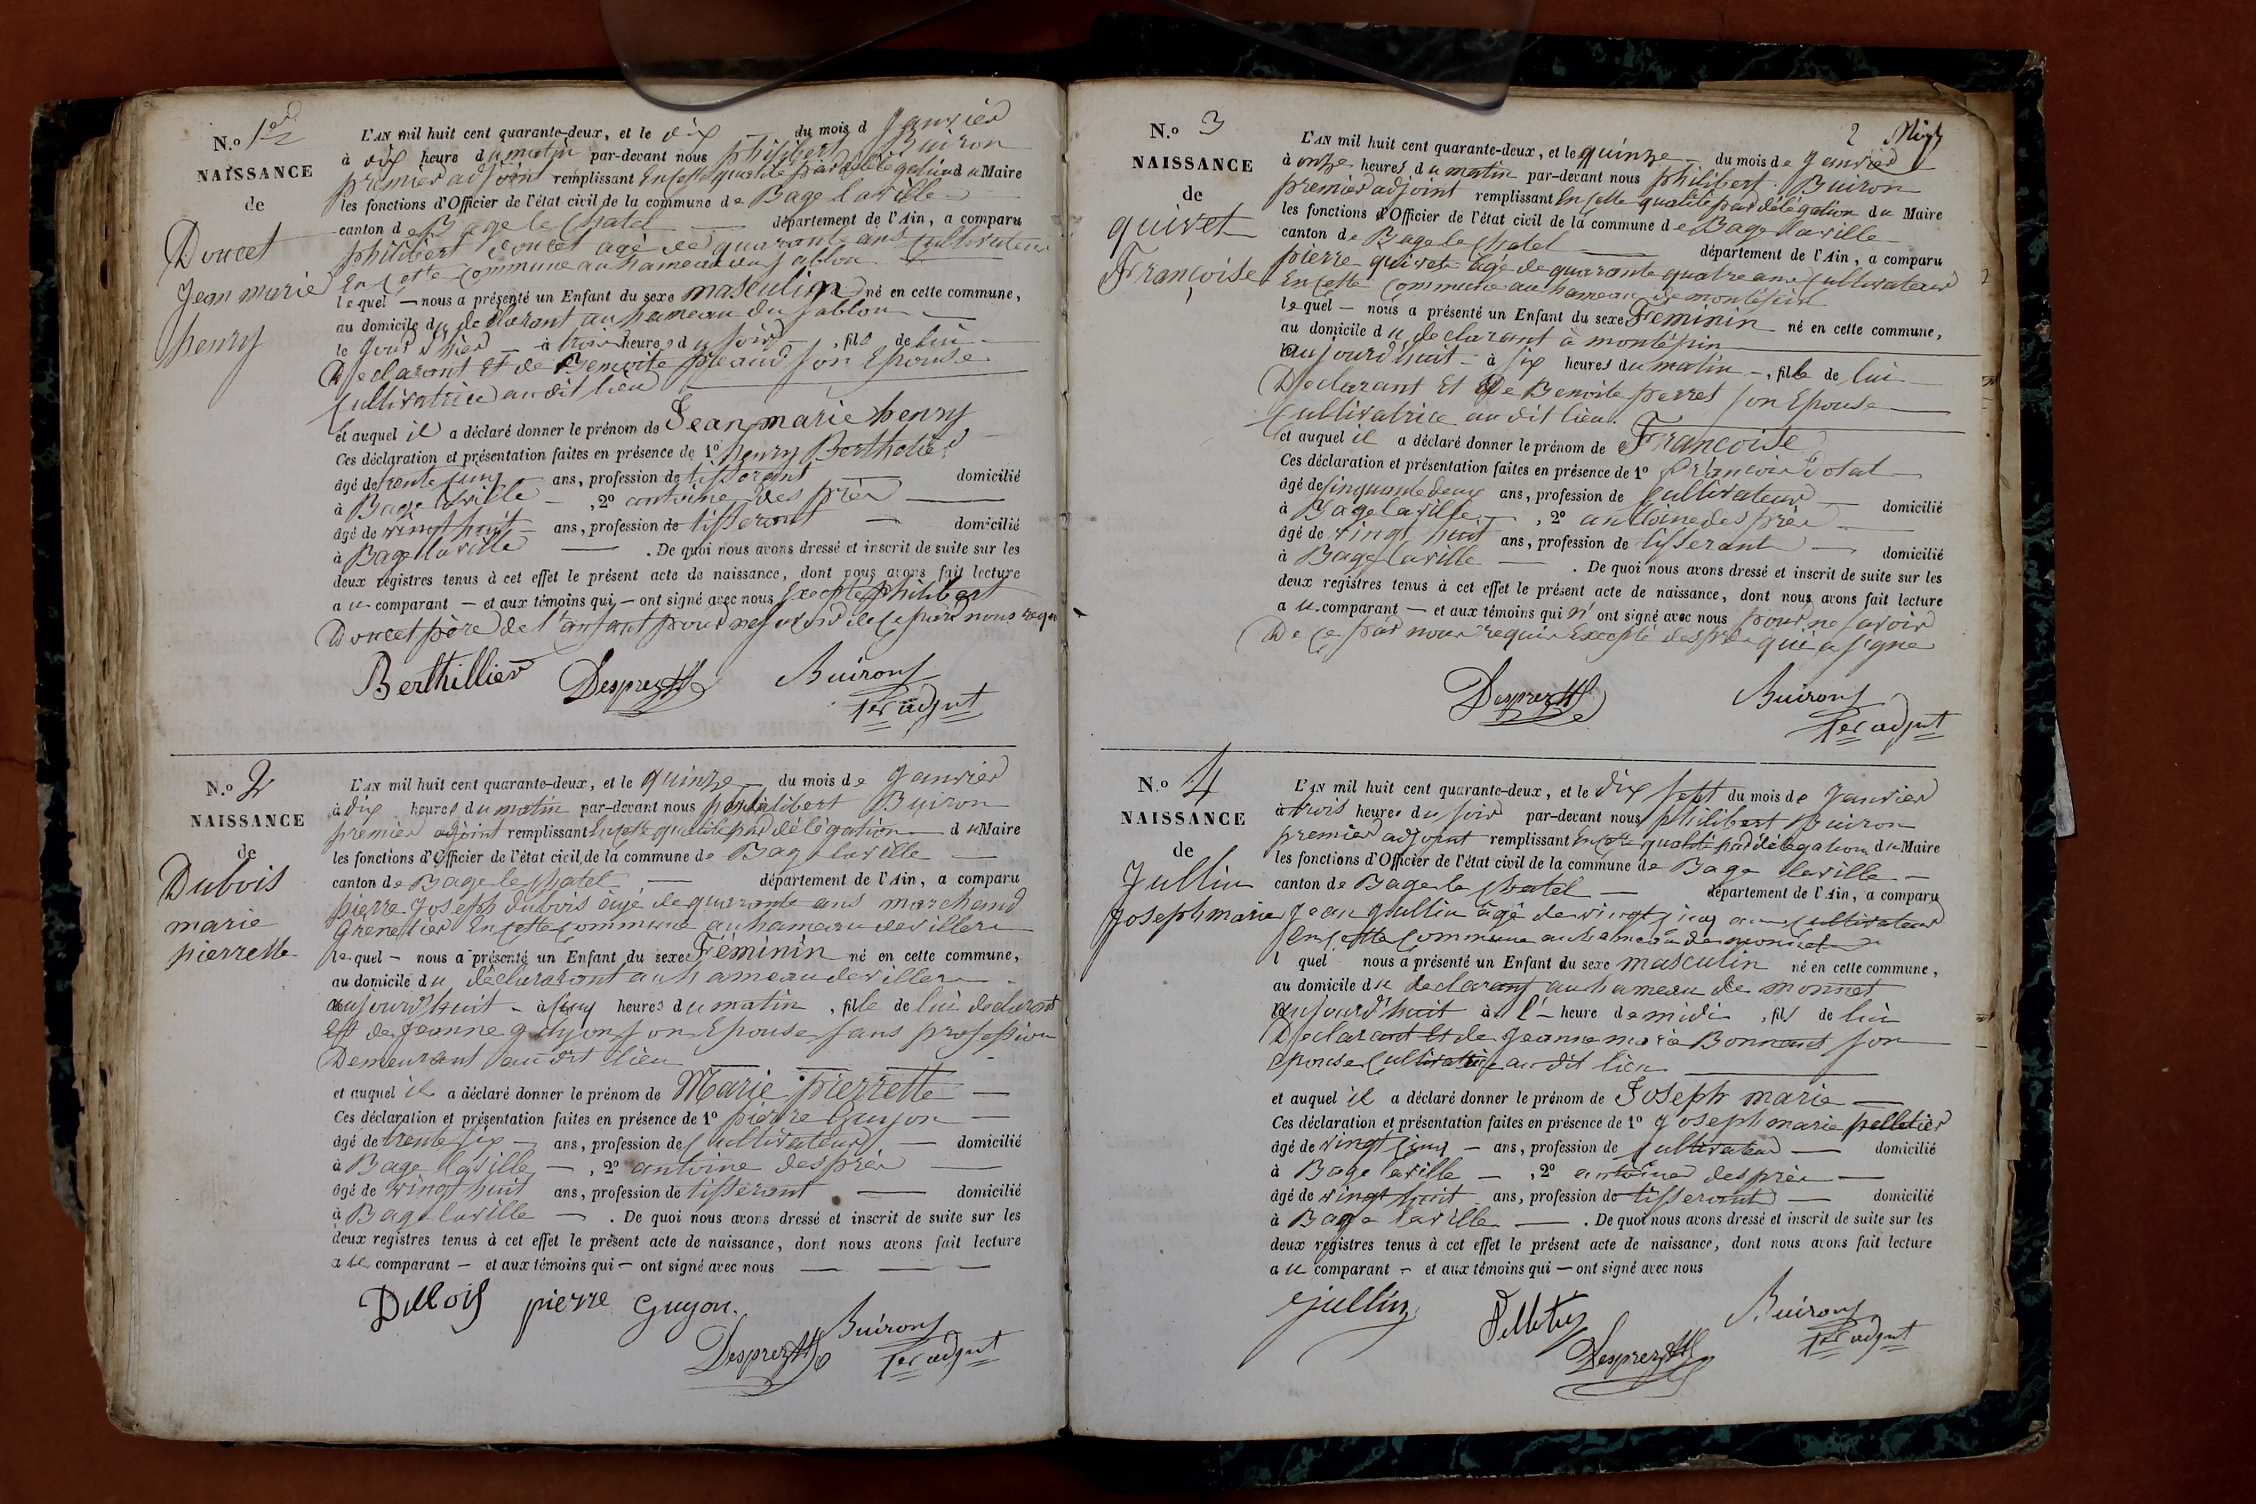 N.o 1er
NAISSANCE
de
Doucet
Jean marie
henry
L'AN mil huit cent quarante-deux, et le dix du mois d Janvier
à dix heure du matin par-devant nous philibert Buiron
premier adjoint remplissant En cette qualité par délégation du Maire
les fonctions d'Officier de l'état civil de la commune de Bage laville
canton de Bage le Chatel département de l'Ain, a comparu
philibert doucet agé de quarante ans Cultivateur
En Cette Commune au hameau du Sablon
lequel — nous a présenté un Enfant du sexe masculin né en cette commune,
au domicile du declarant au hameau du Sablon
le Jour d'hier à trois heures du soir, fils de lui
Declarant Et de Benoite preaud son Epouse
Cultivatrice au dit lieu
et auquel il a déclaré donner le prénom de Jean marie henry
Ces déclaration et présentation faites en présence de 1o henry Berthelier
âgé de trente cinq ans, profession de tisserant domicilié
à Bage laville, 2o antoine desprès
âgé de vingt huit ans, profession de tisserant domicilié
à Bage laville. De quoi nous avons dressé et inscrit de suite sur les
deux registres tenus à cet effet le présent acte de naissance, dont nous avons fait lecture
au comparant — et aux témoins qui — ont signé avec nous Excepté philibert
Doucet père de l'enfant pour ne savoir de ce par nous requis
Berthillier Desprez Buiron
1er adjnt
N.o 2
NAISSANCE
de
Dubois
marie
pierrette
L'AN mil huit cent quarante-deux, et le quinze du mois de Janvier
à dix heures du matin par-devant nous philibert Buiron
premier adjoint remplissant En cette qualité par délégation du Maire
les fonctions d'Officier de l'état civil de la commune de Bage laville
canton de Bage le Chatel département de l'Ain, a comparu
pierre Joseph dubois âgé de quarante ans marchand
Grenetier En cette Commune au hameau de villere
lequel — nous a présenté un Enfant du sexe Féminin né en cette commune,
au domicile du déclararant au hameau de villere
aujourd'huit à cinq heures du matin, fille de lui declarant
Et de Jeanne guyon son Epouse sans profession
Demeurant au dit lieu
et auquel il a déclaré donner le prénom de Marie pierrette
Ces déclaration et présentation faites en présence de 1o pierre Guyon
âgé de trente six ans, profession de Cultivateur domicilié
à Bage laville, 2o antoine desprès
âgé de vingt huit ans, profession de tisserant domicilié
à Bage laville. De quoi nous avons dressé et inscrit de suite sur les
deux registres tenus à cet effet le présent acte de naissance, dont nous avons fait lecture
au comparant — et aux témoins qui — ont signé avec nous
Dubois pierre Guyon. Buiron
Desprez 1er adjnt
2
N.o 3
NAISSANCE
de
quivet
Françoise
L'AN mil huit cent quarante-deux, et le quinze du mois de Janvier
à onze heures du matin par-devant nous philibert Buiron
premier adjoint remplissant En cette qualité par délégation du Maire
les fonctions d'Officier de l'état civil de la commune de Bage laville
canton de Bage le Chatel département de l'Ain, a comparu
pierre quivet âgé de quarante quatre ans Cultivateur
En cette Commune au hameau de montépin
lequel — nous a présenté un Enfant du sexe Feminin né en cette commune,
au domicile du declarant à montépin
aujourd'huit à six heures du matin, fille de lui
Declarant Et De Benoite perret son Epouse
Cultivatrice au dit lieu
et auquel il a déclaré donner le prénom de Françoise
Ces déclaration et présentation faites en présence de 1o françois dotal
âgé de cinquante deux ans, profession de Cultivateur domicilié
à Bage laville, 2o antoine desprès
âgé de vingt huit ans, profession de tisserant domicilié
à Bage laville. De quoi nous avons dressé et inscrit de suite sur les
deux registres tenus à cet effet le présent acte de naissance, dont nous avons fait lecture
au comparant — et aux témoins qui n'ont signé avec nous pour ne savoir
De ce par nous requis Excepté desprès qui a signé
Desprez Buiron
1er adjnt
N.o 4
NAISSANCE
de
Jullin
Joseph marie
L'AN mil huit cent quarante-deux, et le dix sept du mois de Janvier
à trois heures du soir par-devant nous philibert Buiron
premier adjoint remplissant En cette qualité par délégation du Maire
les fonctions d'Officier de l'état civil de la commune de Bage laville
canton de Bage le Chatel département de l'Ain, a comparu
Jean Jullin âgé de vingt cinq ans Cultivateur
En cette Commune au hameau de monnet
l quel nous a présenté un Enfant du sexe masculin né en cette commune,
au domicile du declarant au hameau de monnet
aujourd'huit à l' heure de midi, fils de lui
Declarant Et de Jeanne marie Bonnand son
Epouse Cultivatrice au dit lieu
et auquel il a déclaré donner le prénom de Joseph marie
Ces déclaration et présentation faites en présence de 1o Joseph marie pelletier
âgé de vingt cinq — ans, profession de Cultivateur domicilié
à Bage laville, 2o antoine desprès
âgé de vingt huit ans, profession de tisserant domicilié
à Bage laville. De quoi nous avons dressé et inscrit de suite sur les
deux registres tenus à cet effet le présent acte de naissance, dont nous avons fait lecture
au comparant — et aux témoins qui — ont signé avec nous
Jullin Buiron
Desprez 1er adjnt